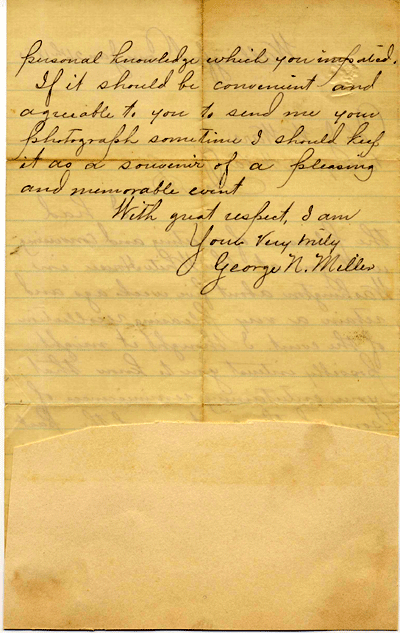 personal knowledge which you imparted.
If it should be convenient and
agreeable to you to send me your
photograph sometime I should keep
it as a souvenir of a pleasing
and memorable event
With great respect, I am
Yours very truly
George N. Miller